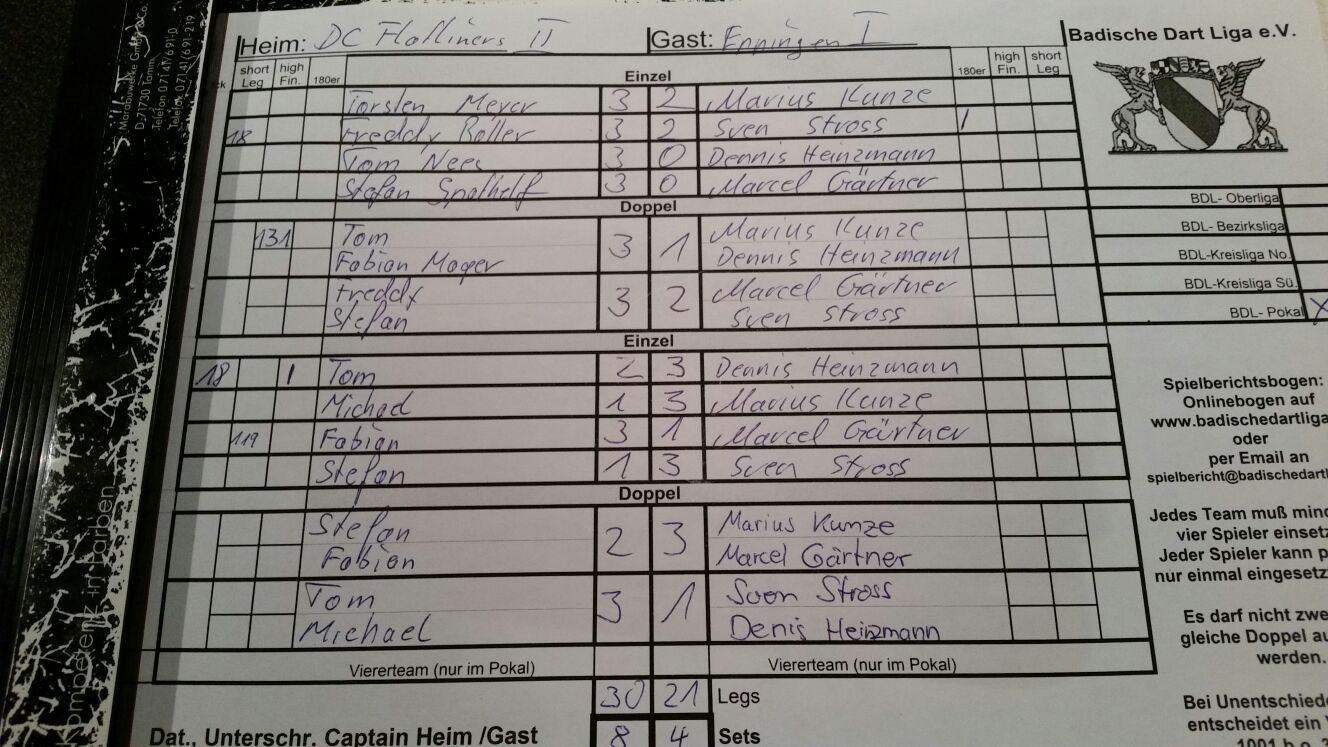 Heim: DC Flatliners II Gast: Enningen I Badische Dart Liga e.V.
short Leg high Fin. 180er Einzel 180er high Fin. short Leg
Torsten Meyer 3 2 Marius Kunze
18 Freddy Roller 3 2 Sven Stross 1
Tom Nees 3 0 Dennis Heinzmann
Stefan Spathelf 3 0 Marcel Gärtner
Doppel
BDL- Oberliga
131 Tom 3 1 Marius Kunze
BDL- Bezirksliga
Fabian Mager Dennis Heinzmann
BDL-Kreisliga No.
Freddy 3 2 Marcel Gärtner
BDL-Kreisliga Sü.
Stefan Sven Stross
BDL- Pokal X
Einzel
18 1 Tom 2 3 Dennis Heinzmann
Michael 1 3 Marius Kunze
119 Fabian 3 1 Marcel Gärtner
Stefan 1 3 Sven Stross
Doppel
Stefan 2 3 Marius Kunze
Fabian Marcel Gärtner
Tom 3 1 Sven Stross
Michael Denis Heinzmann
Viererteam (nur im Pokal) Viererteam (nur im Pokal)
30 21 Legs
Dat., Unterschr. Captain Heim /Gast 8 4 Sets
Spielberichtsbogen:
Onlinebogen auf
www.badischedartliga
oder
per Email an
spielbericht@badischedartl
Jedes Team muß mind
vier Spieler einsetz
Jeder Spieler kann p
nur einmal eingesetz
Es darf nicht zwe
gleiche Doppel au
werden.
Bei Unentschiede
entscheidet ein
1001 b.o.
Marabuwerke GmbH & Co.
D-71730 Tamm
Telefon 07141/691-0
Telefax 07141/691-219
Kompetenz in Farben